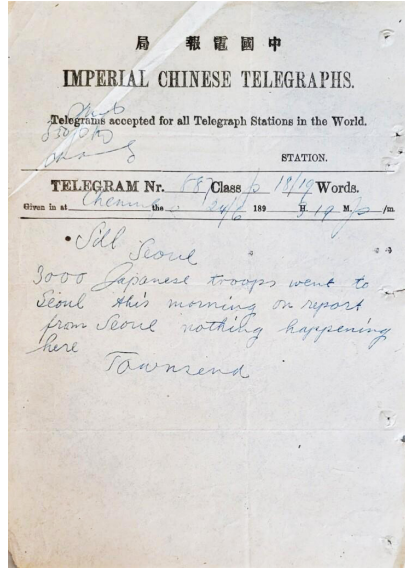 局 報 電 國 中
IMPERIAL CHINESE TELEGRAPHS.
Telegrams accepted for all Telegraph Stations in the World.
STATION.
TELEGRAM Nr. 587 Class p 18/19 Words.
Given in at Chemul the 24/6 189 H. 19 M. p/m
Sdl
Seoul
3000 Japanese troops went to
Seoul this morning on report
from Seoul nothing happening
here
Townsend